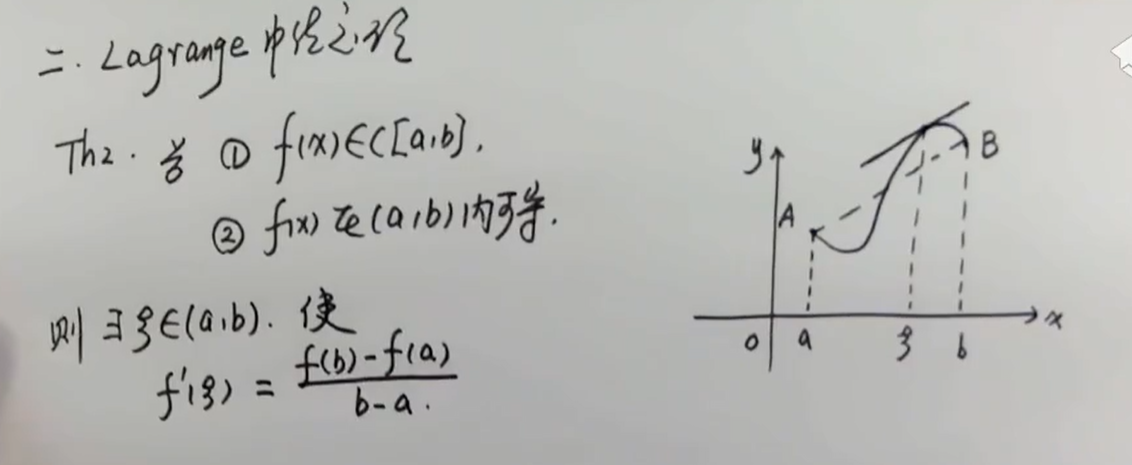 二. Lagrange中值定理
Th2. 若 ① f(x)∈C[a,b].
② f(x)在(a,b)内可导.
则 ∃ξ∈(a,b). 使
f'(ξ) = \frac{f(b)-f(a)}{b-a}.
y
A
B
0 a ξ b x